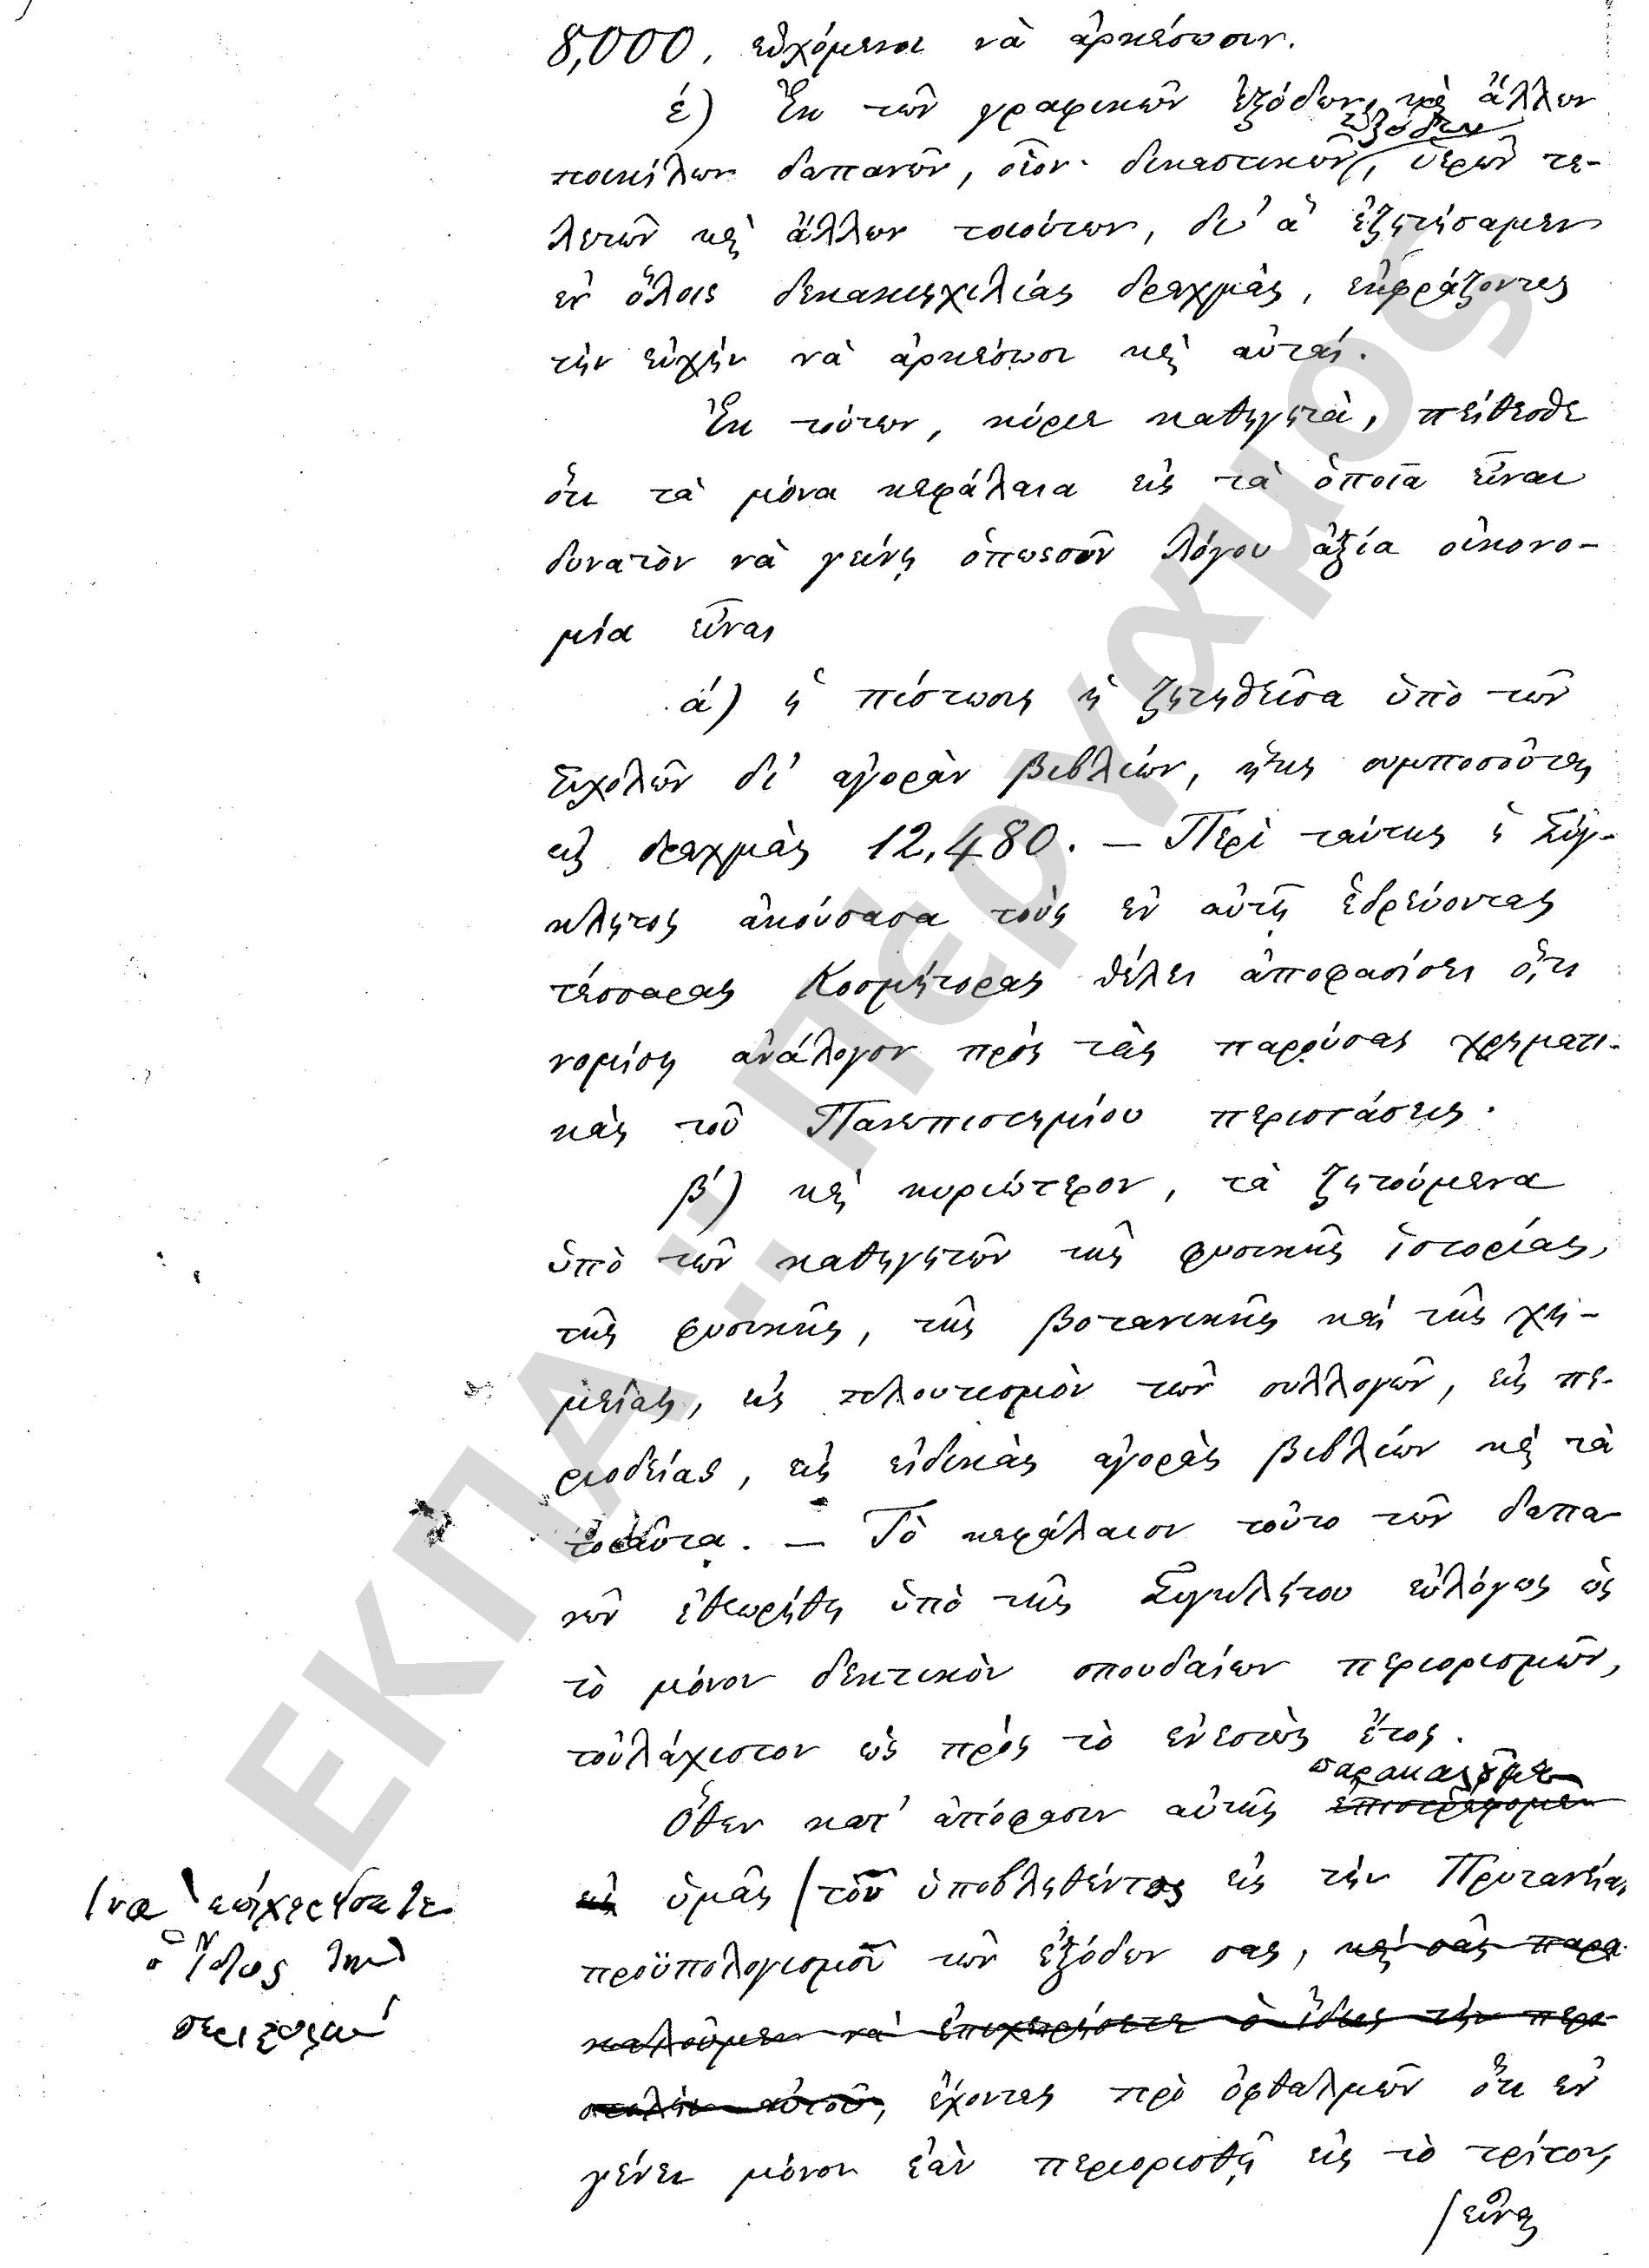 8,000, εὐχόμενοι νὰ ἀρκέσωσιν.
έ) Ἐκ τῶν γραφικῶν ἐξόδων, καὶ ἄλλων
ἐξόδων
ποικίλων δαπανῶν, οἷον· δικαστικῶν, ἱερῶν τε-
λετῶν καὶ ἄλλων τοιούτων, δι' ἃ ἐζητήσαμεν
ἐν ὅλοις δεκακισχιλίας δραχμὰς, ἐκφράζοντες
τὴν εὐχὴν νὰ ἀρκέσωσι καὶ αὐταί.
Ἐκ τούτων, κύριε καθηγητὰ, πείθεσθε
ὅτι τὰ μόνα κεφάλαια εἰς τὰ ὁποῖα εἶναι
δυνατὸν νὰ γείνῃ ὁπωσοῦν λόγου ἀξία οἰκονο-
μία εἶναι
ά) ἡ πίστωσις ἡ ζητηθεῖσα ὑπὸ τῶν
Σχολῶν δι' ἀγορὰν βιβλίων, ἥτις συμποσοῦται
εἰς δραχμὰς 12,480. — Περὶ ταύτης ἡ Σύγ-
κλητος ἀκούσασα τοὺς ἐν αὐτῇ ἑδρεύοντας
τέσσαρας Κοσμήτορας θέλει ἀποφασίσει ὅ,τι
νομίσῃ ἀνάλογον πρὸς τὰς παρούσας χρηματι-
κὰς τοῦ Πανεπιστημίου περιστάσεις.
β') καὶ κυριώτερον, τὰ ζητούμενα
ὑπὸ τῶν καθηγητῶν τῆς φυσικῆς ἱστορίας,
τῆς φυσικῆς, τῆς βοτανικῆς καὶ τῆς χη-
μείας, εἰς πλουτισμὸν τῶν συλλογῶν, εἰς πε-
ριοδείας, εἰς εἰδικὰς ἀγορὰς βιβλίων καὶ τὰ
τοιαῦτα. — Τὸ κεφάλαιον τοῦτο τῶν δαπα-
νῶν ἐθεωρήθη ὑπὸ τῆς Συγκλήτου εὐλόγως ὡς
τὸ μόνον δεκτικὸν σπουδαίων περιορισμῶν,
τοὐλάχιστον ὡς πρὸς τὸ ἐνεστὼς ἔτος.
παρακαλοῦμεν
Ὅθεν κατ' ἀπόφασιν αὐτῆς ἐπιστρέφομεν
εἰς ὑμᾶς / τοῦ ὑποβληθέντος εἰς τὴν Πρυτανείαν
ἵνα ἐπιχειρήσατε
ὁ ἴδιος τὴν
περιστολὴν
προϋπολογισμοῦ τῶν ἐξόδων σας, καὶ σᾶς παρα-
καλοῦμεν νὰ ἐπιχειρήσετε ὁ ἴδιος τὴν περι-
στολὴν αὐτοῦ, ἔχοντες πρὸ ὀφθαλμῶν ὅτι ἐν
γένει μόνον ἐὰν περιορισθῇ εἰς τὸ τρίτον,
/ εἶναι
ΕΚΠΑ.: Περγαμος